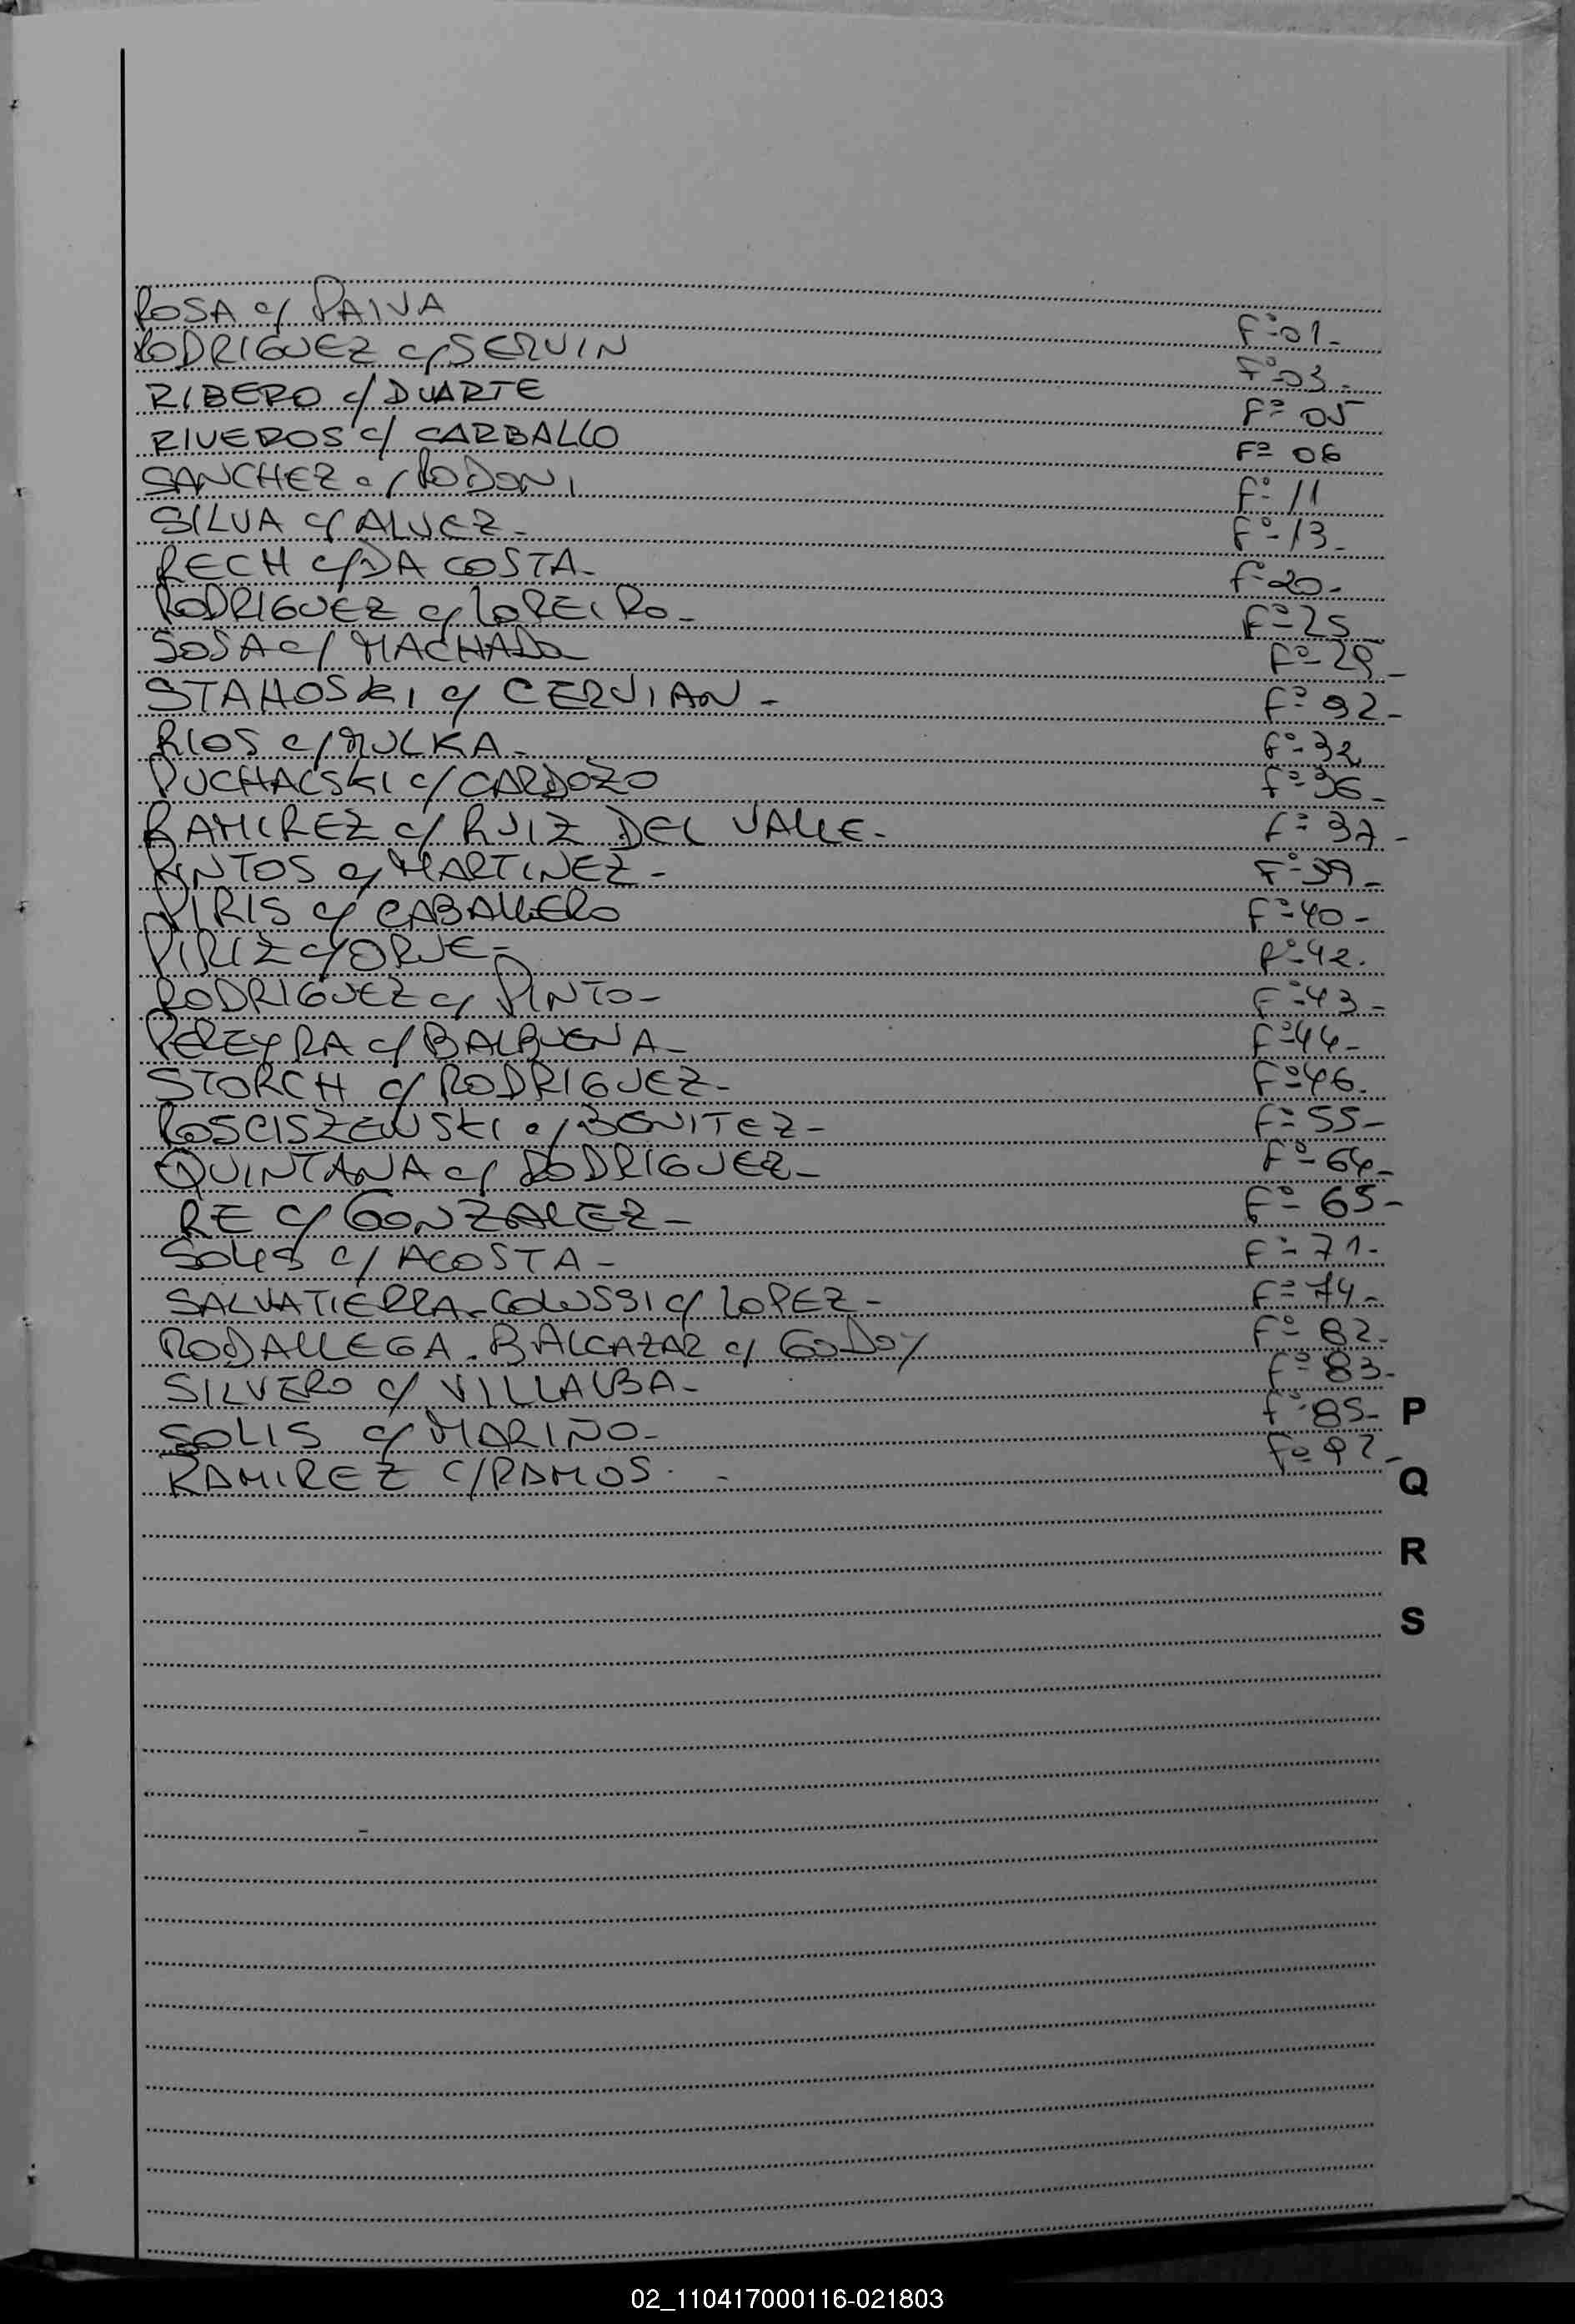 ROSA c/ PAIVA F° 01-
RODRIGUEZ c/ SERVIN F° 03-
RIBERO c/ DUARTE F° 05
RIVEROS c/ CARBALLO F° 06
SANCHEZ c/ RODONI F° 11
SILVA c/ ALVEZ- F° 13-
RECH c/ DA COSTA- F° 20-
RODRIGUEZ c/ LOREIRO- F° 25
SOSA c/ MACHADO F° 29-
STAHOSKI c/ CERVIAN- F° 92-
RIOS c/ MULKA- F° 32
PUCHALSKI c/ CARDOZO F° 36-
RAMIREZ c/ RUIZ DEL VALLE- F° 37-
PINTOS c/ MARTINEZ- F° 39-
PIRIS c/ CABALLERO F° 40-
PIRIZ c/ ORUE- F° 42.
RODRIGUEZ c/ PINTO- F° 43-
PEREYRA c/ BALBUENA- F° 44-
STORCH c/ RODRIGUEZ- F° 46.
ROSCISZEWSKI c/ BENITEZ- F° 55-
QUINTANA c/ RODRIGUEZ- F° 64-
RE c/ GONZALEZ- F° 65-
SOLIS c/ ACOSTA- F° 71-
SALVATIERRA-COLUSSI c/ LOPEZ- F° 74-
RODALLEGA-BALCAZAR c/ GODOY F° 82-
SILVERO c/ VILLALBA- F° 83-
SOLIS c/ MARINO- F° 85- P
RAMIREZ C/ RAMOS.- F° 92- Q
R
S
02_110417000116-021803